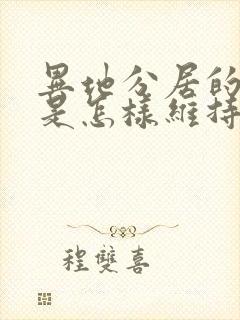 異地分居的
是怎樣維持
程雙喜